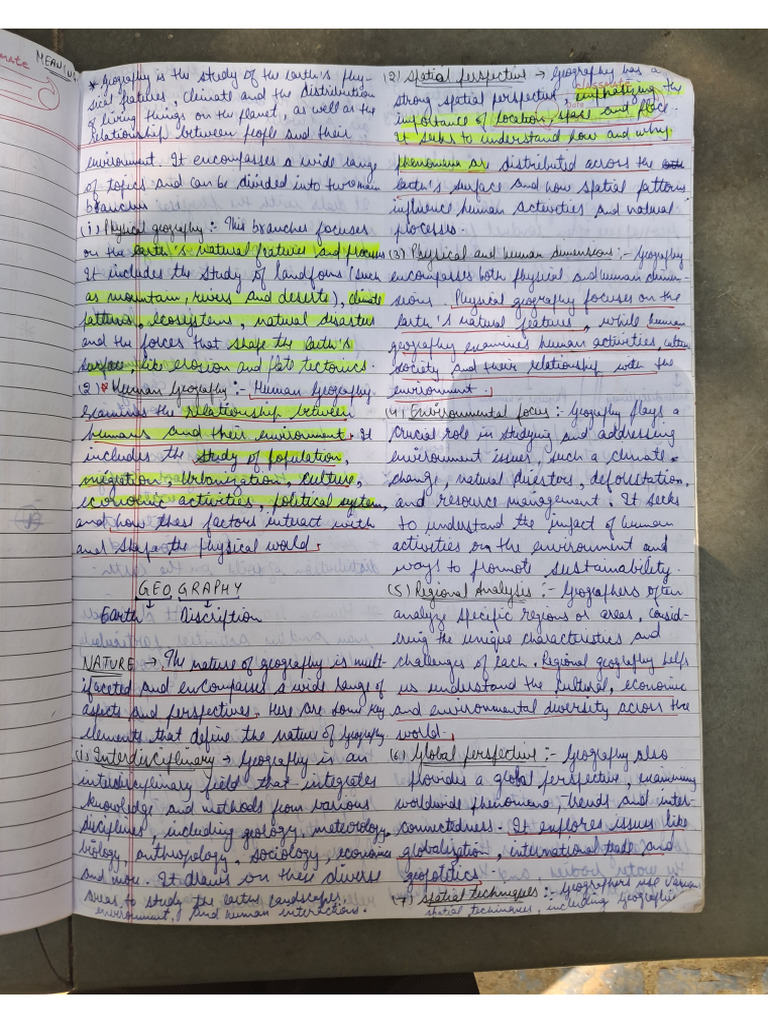 MEANING
* Geography is the study of the earth's phy-
sical features, climate and the distribution
of living things on the planet, as well as the
relationship between people and their
environment. It encompasses a wide range
of topics and can be divided into two main
branches
(1) Physical geography :- This branches focuses
on the earth's natural features and process
It includes the study of landforms (such
as mountain, rivers and deserts), climate
patterns, ecosystems, natural disasters
and the forces that shape the earth's
surface like erosion and plate tectonics.
(2) * Human Geography :- Human Geography
examines the relationship between
humans and their environment. It
includes the study of population,
migration urbanization, culture,
economic activities, political system,
and how these factors interact with
and shape the physical world.
GEO GRAPHY
Earth Discription
NATURE → The nature of geography is mult-
ifaceted and encompasses a wide range of
aspects and perspectives. Here are some key
elements that define the nature of Geography
(1) Interdisciplinary → Geography is an
interdisciplinary field that integrates
knowledge and methods from various
disciplines, including geology, meteorology,
biology, anthropology, sociology, economics
and more. It draws on these diverse
areas to study the earths landscapes,
environment, and human interactions.
(2) Spatial perspective → Geography has a
strong spatial perspective emphasizing the
importance of location, space and place.
It seeks to understand how and why
phenomena are distributed across the
earth's surface and how spatial patterns
influence human activities and natural
processes.
(3) Physical and human dimensions :- Geography
encompasses both physical and human dimen-
sions. Physical geography focuses on the
earth's natural features, while human
geography examines human activities, culture
society and their relationship with the
environment.
(4) Environmental focus :- Geography plays a
crucial role in studying and addressing
environment issues, such a climate
change, natural disasters, deforestation,
and resource management. It seeks
to understand the impact of human
activities on the environment and
ways to promote sustainability.
(5) Regional Analysis :- Geographers often
analyze specific regions or areas, consid-
ering the unique characteristics and
challenges of each. Regional geography helps
us understand the cultural, economic
and environmental diversity across the
world.
(6) Global perspective :- Geography also
provides a global perspective, examining
worldwide phenomena, trends and inter-
connectedness. It explores issues like
globalization, international trade and
geopolitics
(7) Spatial techniques :- Geographers use various
spatial techniques, including Geographic